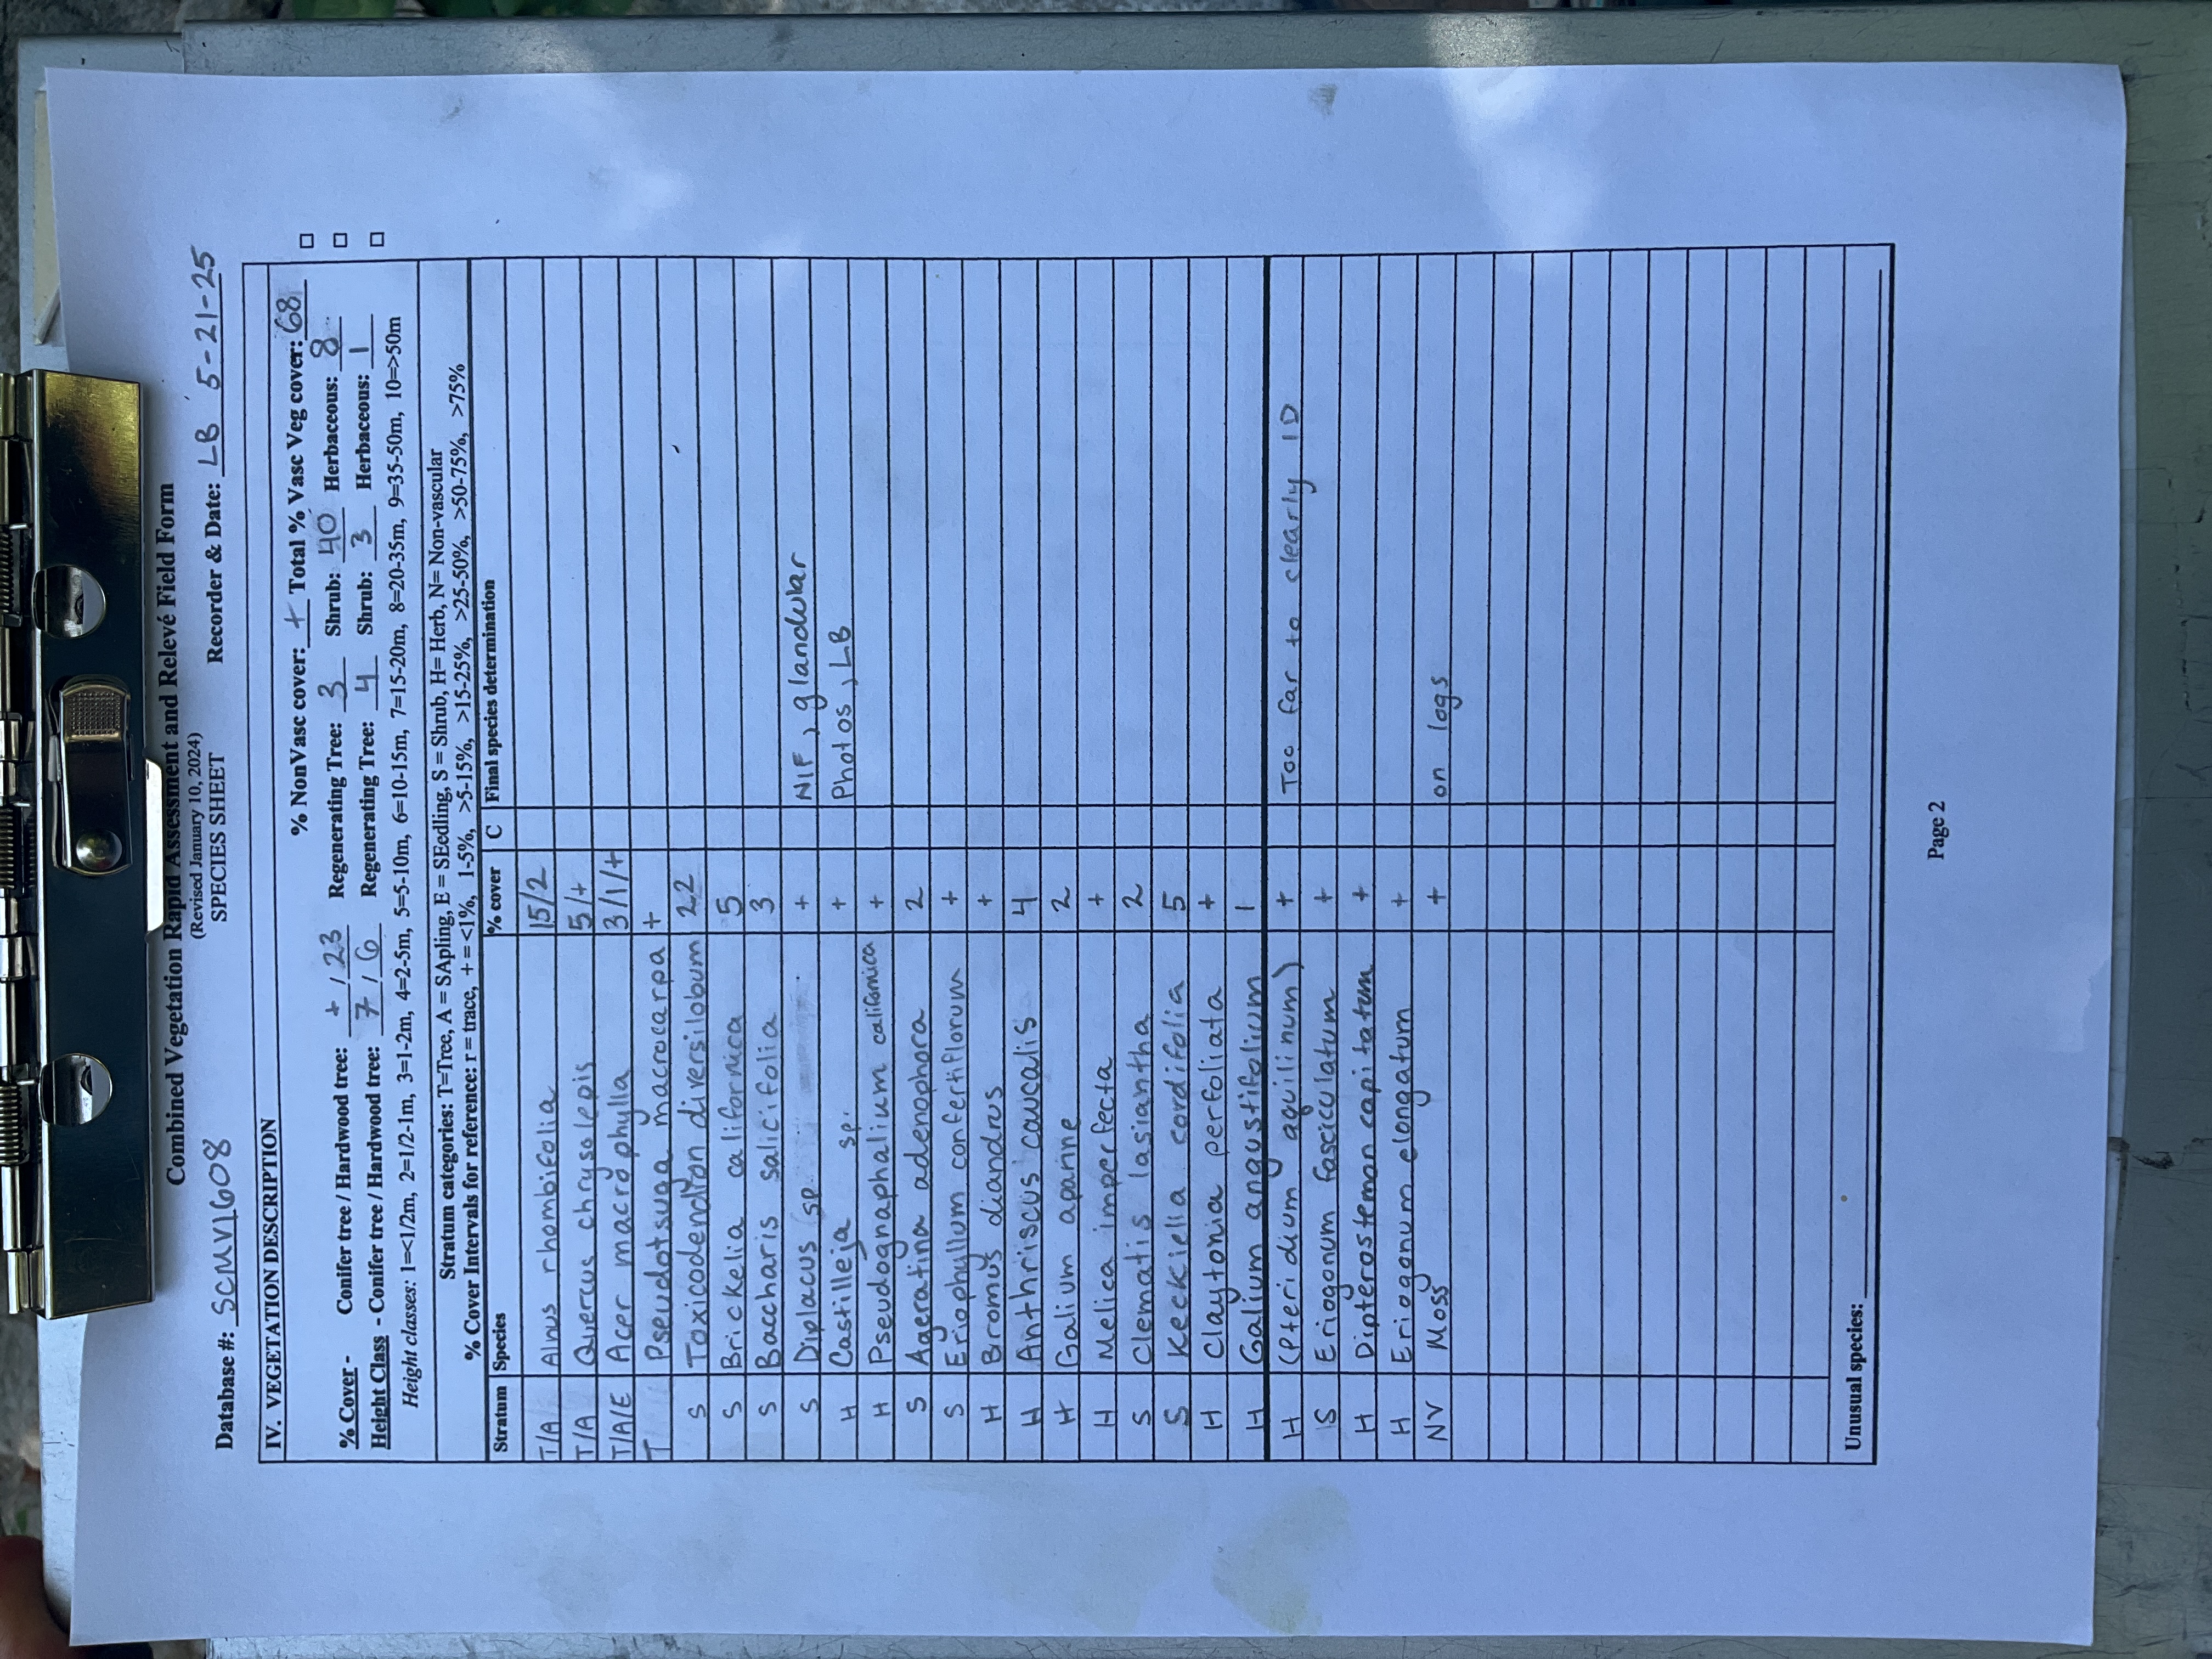 Combined Vegetation Rapid Assessment and Relevé Field Form
(Revised January 10, 2024)
SPECIES SHEET
Database #: SCMV1608 Recorder & Date: LB 5-21-25
IV. VEGETATION DESCRIPTION
% NonVasc cover: + Total % Vasc Veg cover: 68
% Cover - Conifer tree / Hardwood tree: + / 23 Regenerating Tree: 3 Shrub: 40 Herbaceous: 8
Height Class - Conifer tree / Hardwood tree: 7 / 6 Regenerating Tree: 4 Shrub: 3 Herbaceous: 1
Height classes: 1=<1/2m, 2=1/2-1m, 3=1-2m, 4=2-5m, 5=5-10m, 6=10-15m, 7=15-20m, 8=20-35m, 9=35-50m, 10=>50m
Stratum categories: T=Tree, A = SApling, E = SEedling, S = Shrub, H= Herb, N= Non-vascular
% Cover Intervals for reference: r = trace, + = <1%, 1-5%, >5-15%, >15-25%, >25-50%, >50-75%, >75%
Stratum Species % cover C Final species determination
T/A Alnus rhombifolia 15/2
T/A Quercus chrysolepis 5/+
T/A/E Acer macrophylla 3/1/+
T Pseudotsuga macrocarpa +
S Toxicodendron diversilobum 22
S Brickelia californica 5
S Baccharis salicifolia 3
S Diplacus sp. + NIF, glandular
H Castilleja sp. + Photos, LB
H Pseudognaphalium californica +
S Ageratina adenophora 2
S Eriophyllum confertiflorum +
H Bromus diandrus +
H Anthriscus caucalis 4
H Galium aparine 2
H Melica imperfecta +
S Clematis lasiantha 2
S Keckiella cordifolia 5
H Claytonia perfoliata +
H Galium angustifolium 1
H (Pteridium aquilinum) + Too far to clearly ID
S Eriogonum fasciculatum +
H Dipterostemon capitatum +
H Eriogonum elongatum +
NV Moss + on logs
Unusual species:
Page 2